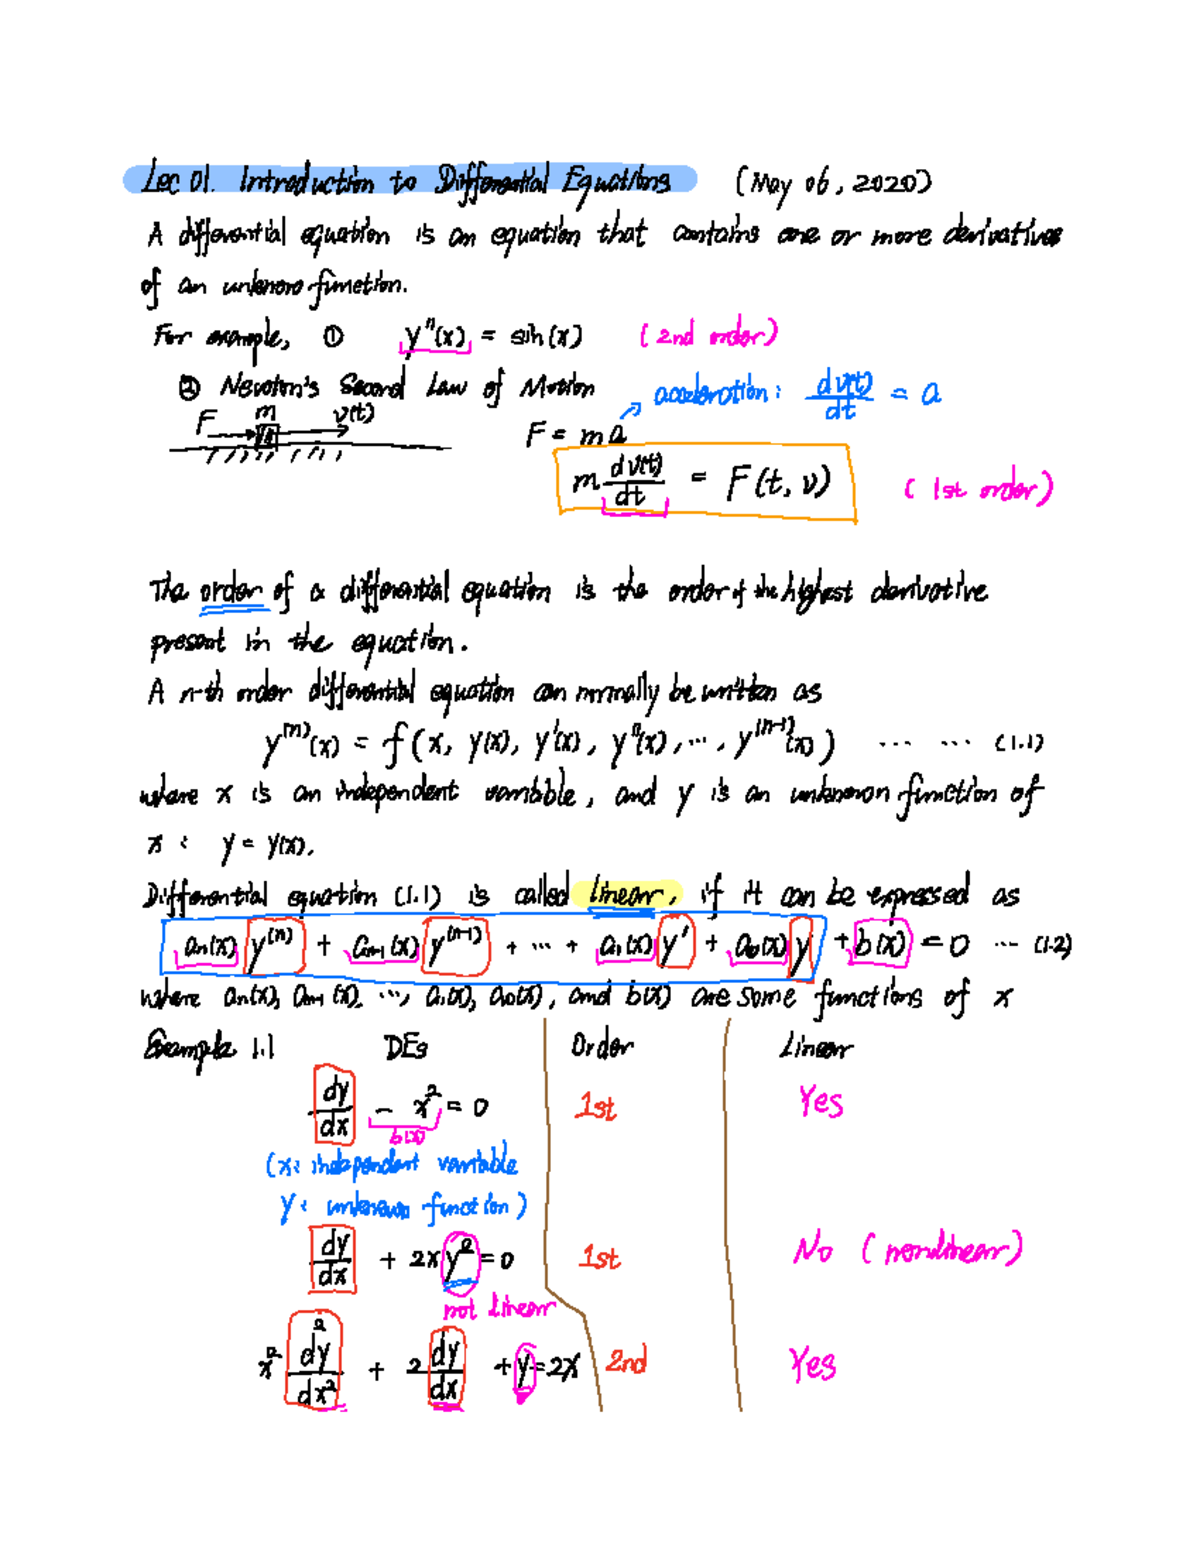 Lec 01. Introduction to Differential Equations (May 06, 2020)
A differential equation is an equation that contains one or more derivatives
of an unknown function.
For example, ① y''(x) = sin(x) (2nd order)
② Newton's Second Law of Motion acceleration: dv(t)/dt = a
F m v(t) F = ma
m dv(t)/dt = F(t, v) (1st order)
The order of a differential equation is the order of the highest derivative
present in the equation.
A n-th order differential equation can normally be written as
y⁽ⁿ⁾(x) = f(x, y(x), y'(x), y''(x), ..., y⁽ⁿ⁻¹⁾(x)) ... ... (1.1)
where x is an independent variable, and y is an unknown function of
x : y = y(x).
Differential equation (1.1) is called linear, if it can be expressed as
aₙ(x) y⁽ⁿ⁾ + aₙ₋₁(x) y⁽ⁿ⁻¹⁾ + ... + a₁(x) y' + a₀(x) y + b(x) = 0 ... (1.2)
where aₙ(x), aₙ₋₁(x), ..., a₁(x), a₀(x), and b(x) are some functions of x
Example 1.1 DEs Order Linear
dy/dx - x² = 0 1st Yes
b(x)
(x: independent variable
y: unknown function)
dy/dx + 2xy² = 0 1st No (nonlinear)
not linear
x² d²y/dx² + 2 dy/dx + y = 2x 2nd Yes